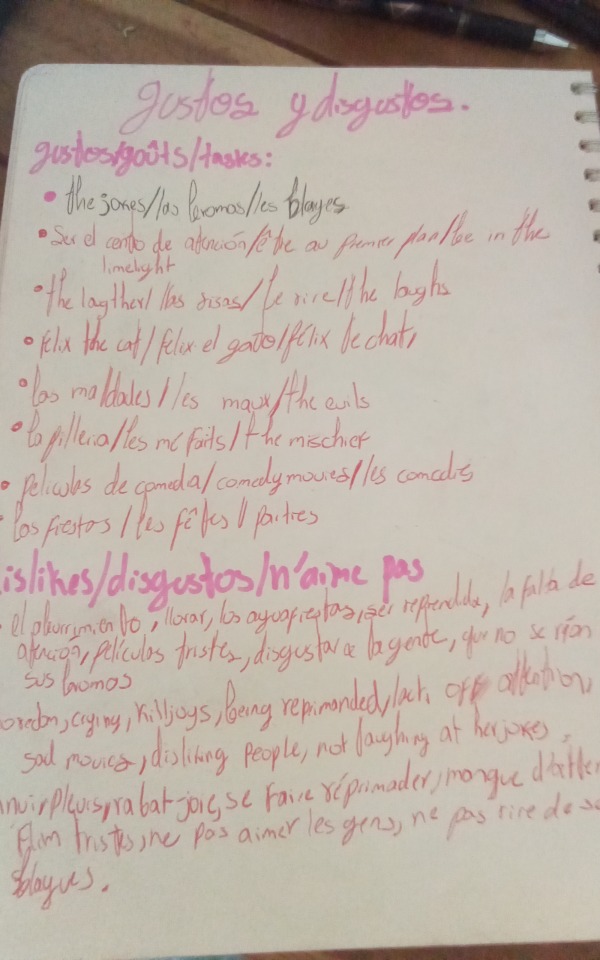 gustos y disgustos.
gustos/goûts/tasks:
• the jokes/las bromas/les blages
• Ser el cento de atención/être au premier plan/be in the
limelight
• the lagther/las risas/le rire/the laughs
• felix the cat/felix el gato/félix le chat,
• las maldales/les maux/the evils
• la pilleria/les mé faits/the mischief
• peliculas de comedia/comedy movies/les comedies
• las fiestas/les fêtes/paitres
islikes/disgustos/n'aime pas
el aburrimiento, llorar, los aguafiestas, ser reprendida, la falta de
atención, películas tristes, disgustarle la gente, que no se rían
sus bromas
oredon, crying, killjoys, being reprimanded, lack off attention,
sad movies, disliking people, not laughing at her jokes,
nnuir, pleurs, rabat-joie, se faire réprimader, manque d'atten
film tristes, ne pas aimer les gens, ne pas rire de se
blagues.